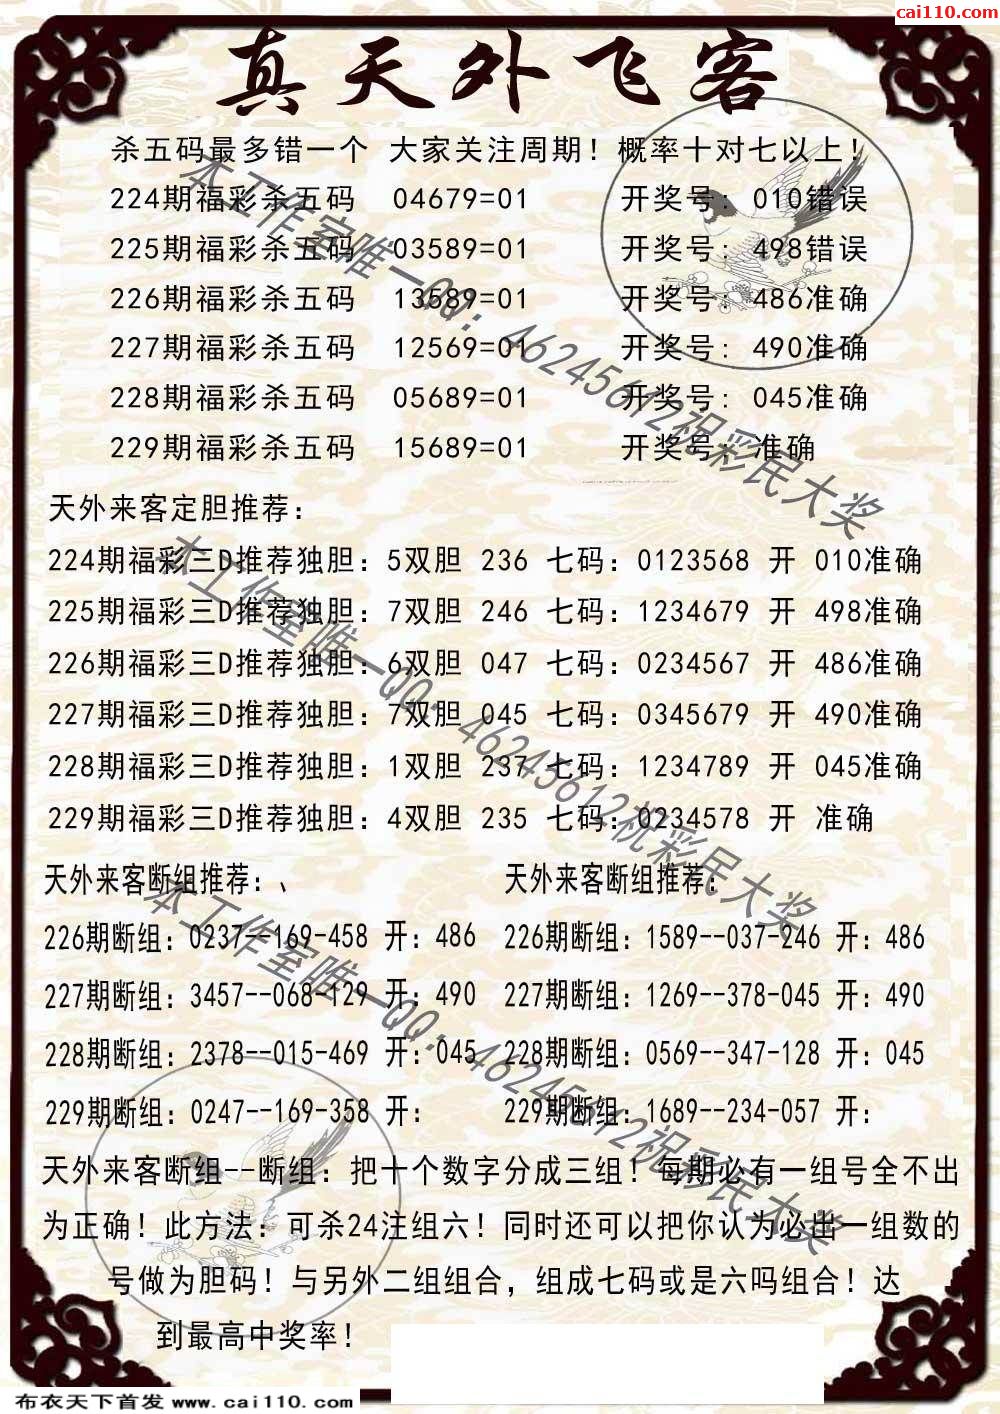 cai110.com
真天外飞客
杀五码最多错一个 大家关注周期！概率十对七以上！
224期福彩杀五码 04679=01 开奖号：010错误
225期福彩杀五码 03589=01 开奖号：498错误
226期福彩杀五码 13589=01 开奖号：486准确
227期福彩杀五码 12569=01 开奖号：490准确
228期福彩杀五码 05689=01 开奖号：045准确
229期福彩杀五码 15689=01 开奖号：准确
本工作室唯一QQ：46245612祝彩民大奖
天外来客定胆推荐：
224期福彩三D推荐独胆：5双胆 236 七码：0123568 开 010准确
225期福彩三D推荐独胆：7双胆 246 七码：1234679 开 498准确
226期福彩三D推荐独胆：6双胆 047 七码：0234567 开 486准确
227期福彩三D推荐独胆：7双胆 045 七码：0345679 开 490准确
228期福彩三D推荐独胆：1双胆 237 七码：1234789 开 045准确
229期福彩三D推荐独胆：4双胆 235 七码：0234578 开 准确
本工作室唯一QQ：46245612祝彩民大奖
天外来客断组推荐：、 天外来客断组推荐：
226期断组：0237--169-458 开：486 226期断组：1589--037-246 开：486
227期断组：3457--068-129 开：490 227期断组：1269--378-045 开：490
228期断组：2378--015-469 开：045 228期断组：0569--347-128 开：045
229期断组：0247--169-358 开： 229期断组：1689--234-057 开：
本工作室唯一QQ：46245612祝彩民大奖
天外来客断组--断组：把十个数字分成三组！每期必有一组号全不出
为正确！此方法：可杀24注组六！同时还可以把你认为必出一组数的
号做为胆码！与另外二组组合，组成七码或是六吗组合！达
到最高中奖率！
布衣天下首发 www.cai110.com